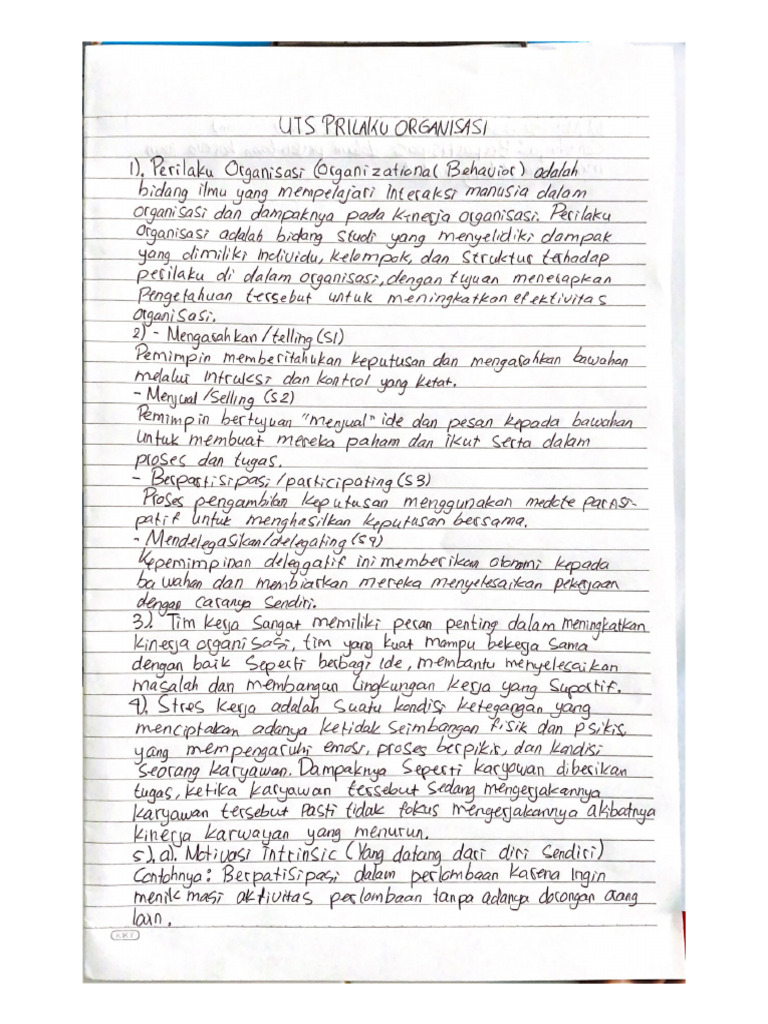 UTS PRILAKU ORGANISASI
1). Perilaku Organisasi (Organizational Behavior) adalah
bidang ilmu yang mempelajari interaksi manusia dalam
organisasi dan dampaknya pada kinerja organisasi. Perilaku
organisasi adalah bidang studi yang menyelidiki dampak
yang dimiliki individu, kelompok, dan struktur terhadap
perilaku di dalam organisasi, dengan tujuan menerapkan
Pengetahuan tersebut untuk meningkatkan efektivitas
organisasi.
2) - Mengarahkan/telling (S1)
Pemimpin memberitahukan keputusan dan mengarahkan bawahan
melalui intruksi dan kontrol yang ketat.
- Menjual/Selling (S2)
Pemimpin bertujuan "menjual" ide dan pesan kepada bawahan
untuk membuat mereka paham dan ikut serta dalam
proses dan tugas.
- Berpartisipasi/participating (S3)
Proses pengambilan keputusan menggunakan medote parasi-
patif untuk menghasilkan keputusan bersama.
- Mendelegasikan/delegating (S4)
Kepemimpinan deleggatif ini memberikan otonomi kepada
bawahan dan membiarkan mereka menyelesaikan pekerjaan
dengan caranya sendiri.
3). Tim kerja sangat memiliki peran penting dalam meningkatkan
kinerja organisasi, tim yang kuat mampu bekerja sama
dengan baik seperti berbagi ide, membantu menyelesaikan
masalah dan membangun lingkungan kerja yang suportif.
4). Stres kerja adalah suatu kondisi ketegangan yang
menciptakan adanya ketidak seimbangan fisik dan psikis,
yang mempengaruhi emosi, proses berpikir, dan kondisi
seorang karyawan. Dampaknya seperti karyawan diberikan
tugas, ketika karyawan tersebut sedang mengerjakannya
karyawan tersebut pasti tidak fokus mengerjakannya akibatnya
kinerja karwayan yang menurun.
5). a). Motivasi intrinsic (Yang datang dari diri sendiri)
Contohnya: Berpatisipasi dalam perlombaan karena ingin
menikmasi aktivitas perlombaan tanpa adanya dorongan orang
lain.
KKY